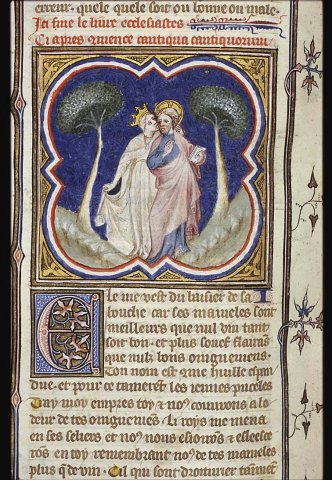 erreur. quele quele soit ou bonne ou male.
Ici fine le livre ecclesiastes
Ci apres cmence cantiqua canticorum.
Ele me vest du baisier de sa
bouche car ses mameles sont
meilleurs que nul vin tant
soit bon. et plus souef flairans
que nulz bons oingnemens.
Ton nom est cme huille espan
due. et pour ce tamerent les iennes pucelles
Tray moy empres toy & nos courrons a lo
deur de tes oingnemens. Li roys me mena
en ses seliers et nos nous esioirons & esleece
rons en toy remembrant nos de tes mameles
plus q de vin. Cil qui sont droiturier taiment